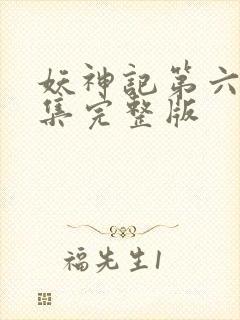 妖神記第六
集完整版
福先生1